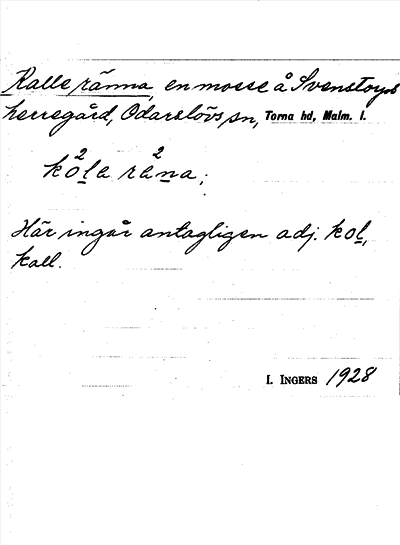 Kalle ränna, en mosse å Svenstorps
herregård, Odarslövs sn, Torna hd, Malm. l.
2 2
kola räna;
Här ingår antagligen adj. kol,
kall.
I. INGERS 1928